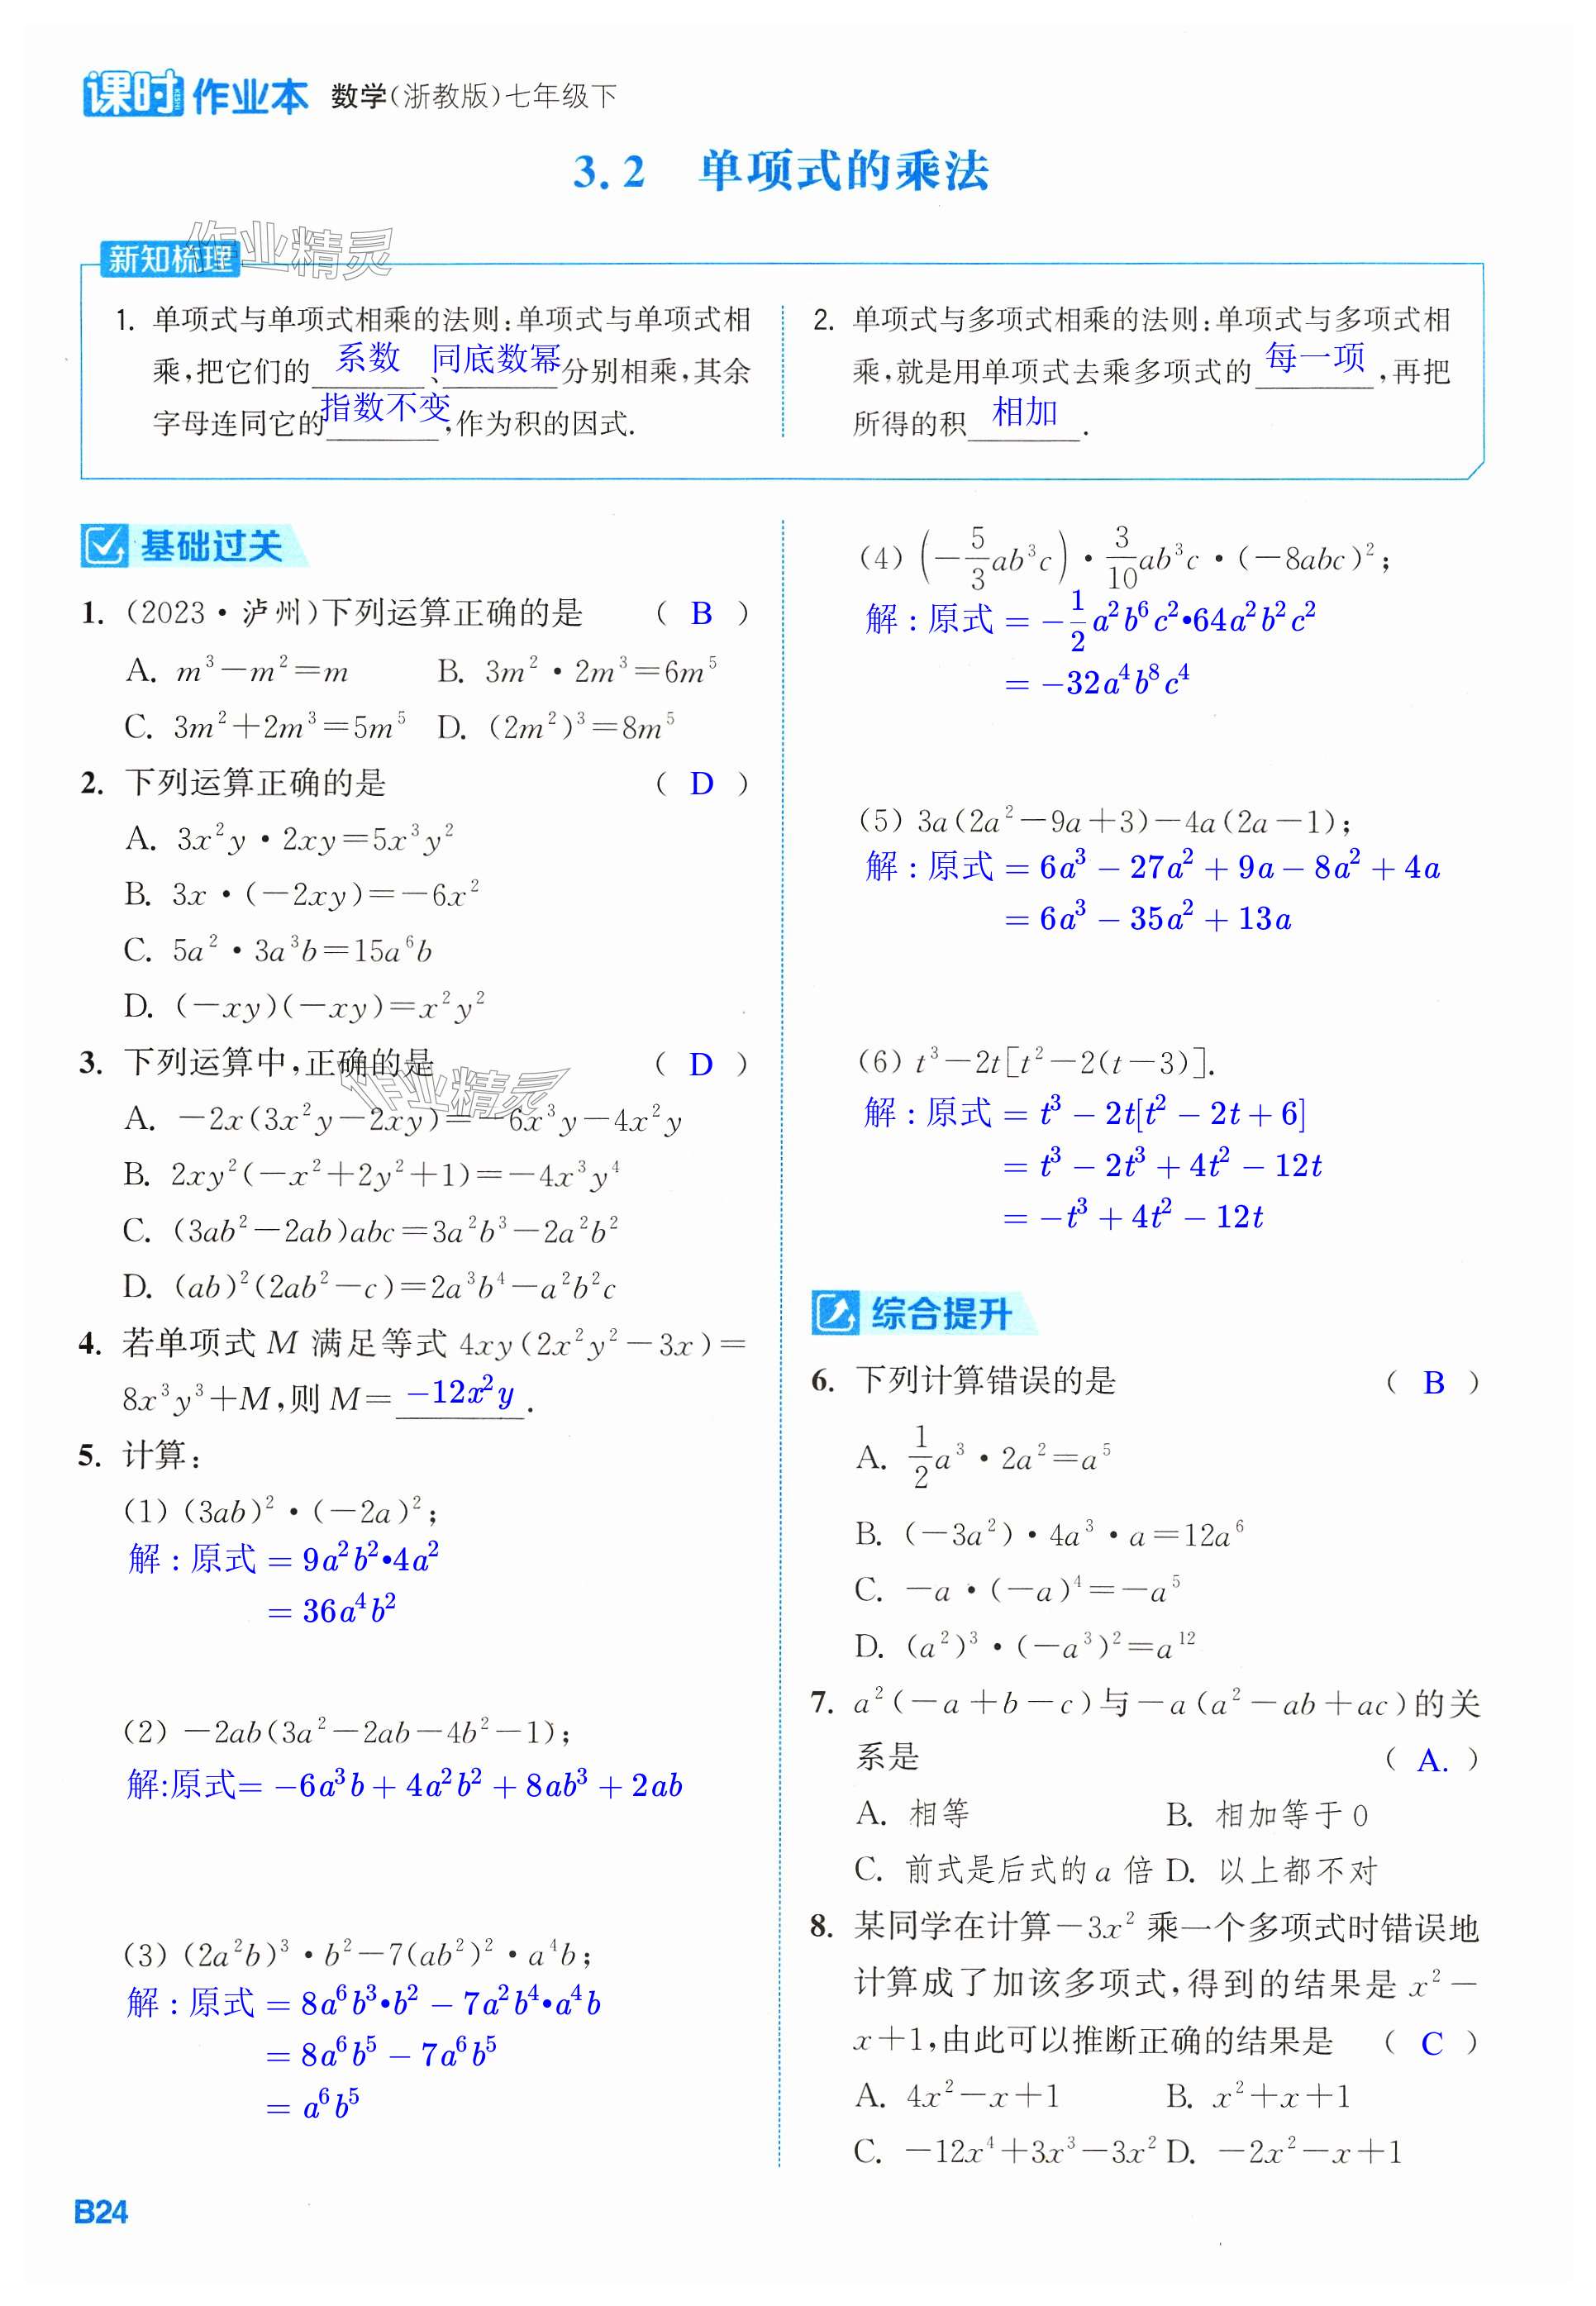 课时作业本 数学(浙教版)七年级下
3.2 单项式的乘法
作业精灵
新知梳理
1. 单项式与单项式相乘的法则:单项式与单项式相
乘,把它们的 系数 、同底数幂 分别相乘,其余
字母连同它的 指数不变 ,作为积的因式.
2. 单项式与多项式相乘的法则:单项式与多项式相
乘,就是用单项式去乘多项式的 每一项 ,再把
所得的积 相加 .
基础过关
1. (2023·泸州)下列运算正确的是 ( B )
A. m³-m²=m B. 3m²·2m³=6m⁵
C. 3m²+2m³=5m⁵ D. (2m²)³=8m⁵
2. 下列运算正确的是 ( D )
A. 3x²y·2xy=5x³y²
B. 3x·(-2xy)=-6x²
C. 5a²·3a³b=15a⁶b
D. (-xy)(-xy)=x²y²
3. 下列运算中,正确的是 ( D )
作业精灵
A. -2x(3x²y-2xy)=-6x³y-4x²y
B. 2xy²(-x²+2y²+1)=-4x³y⁴
C. (3ab²-2ab)abc=3a²b³-2a²b²
D. (ab)²(2ab²-c)=2a³b⁴-a²b²c
4. 若单项式 M 满足等式 4xy(2x²y²-3x)=
8x³y³+M,则 M= -12x²y .
5. 计算:
(1) (3ab)²·(-2a)²;
解:原式=9a²b²•4a²
=36a⁴b²
(2) -2ab(3a²-2ab-4b²-1);
解:原式=-6a³b+4a²b²+8ab³+2ab
(3) (2a²b)³·b²-7(ab²)²·a⁴b;
解:原式=8a⁶b³•b²-7a²b⁴•a⁴b
=8a⁶b⁵-7a⁶b⁵
=a⁶b⁵
(4) (-5/3ab³c)·3/10ab³c·(-8abc)²;
解:原式=-1/2a²b⁶c²•64a²b²c²
=-32a⁴b⁸c⁴
(5) 3a(2a²-9a+3)-4a(2a-1);
解:原式=6a³-27a²+9a-8a²+4a
=6a³-35a²+13a
(6) t³-2t[t²-2(t-3)].
解:原式=t³-2t[t²-2t+6]
=t³-2t³+4t²-12t
=-t³+4t²-12t
综合提升
6. 下列计算错误的是 ( B )
A. 1/2a³·2a²=a⁵
B. (-3a²)·4a³·a=12a⁶
C. -a·(-a)⁴=-a⁵
D. (a²)³·(-a³)²=a¹²
7. a²(-a+b-c)与-a(a²-ab+ac)的关
系是 ( A. )
A. 相等 B. 相加等于 0
C. 前式是后式的 a 倍 D. 以上都不对
8. 某同学在计算-3x² 乘一个多项式时错误地
计算成了加该多项式,得到的结果是 x²-
x+1,由此可以推断正确的结果是 ( C )
A. 4x²-x+1 B. x²+x+1
C. -12x⁴+3x³-3x² D. -2x²-x+1
B24